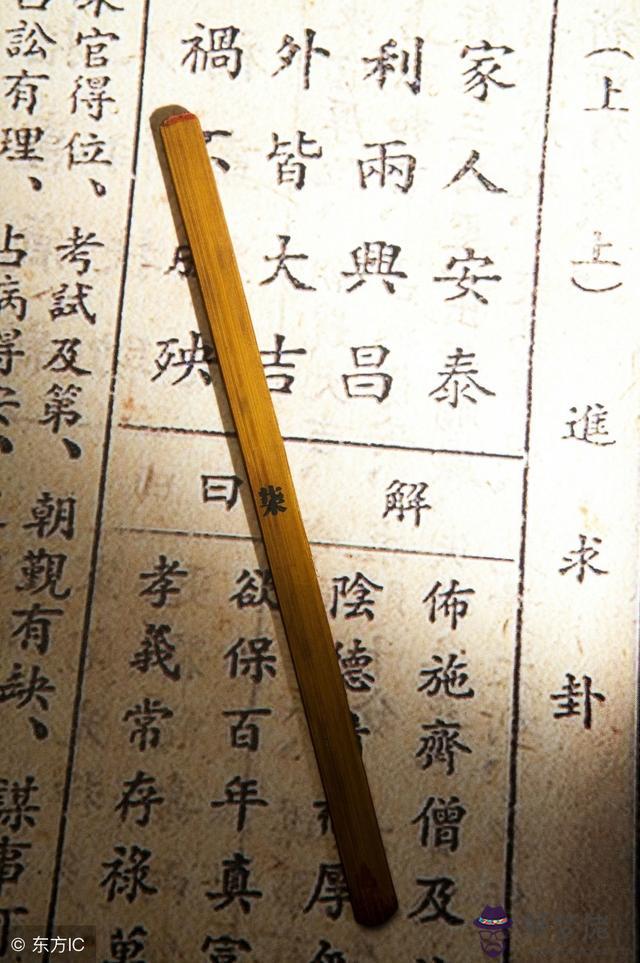 （上上）進求卦
家人安泰
利兩興昌
外皆大吉
禍殃
解曰
佈施齊僧及
陰德厚
欲保百年真富
孝義常存祿萬
求官得位、考試及第、朝觀有缺、謀事
訟有理、占病得安、
柒
© 东方IC